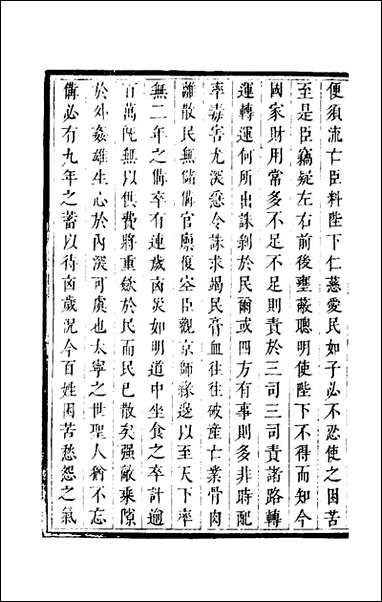 便須流亡臣料陛下仁慈愛民如子必不忍使之困苦
至是臣竊疑左右前後壅蔽聰明使陛下不得而知今
國家財用常多不足不足則責於三司三司責諸路轉
運轉運何所出誅剥於民爾或四方有事則多非時配
率毒害尤深急令誅求竭民膏血往往破産亡業骨肉
離散民無儲備官廪復空臣觀京師緣邊以至天下率
無二年之備卒有連歲凶災如明道中坐食之卒計逾
百萬旣無以供費將重歛於民而民已散矣强敵乘隙
於外姦雄生心於內深可虞也太寧之世聖人猶不忘
備必有九年之蓄以待凶歲況今百姓困苦愁怨之氣